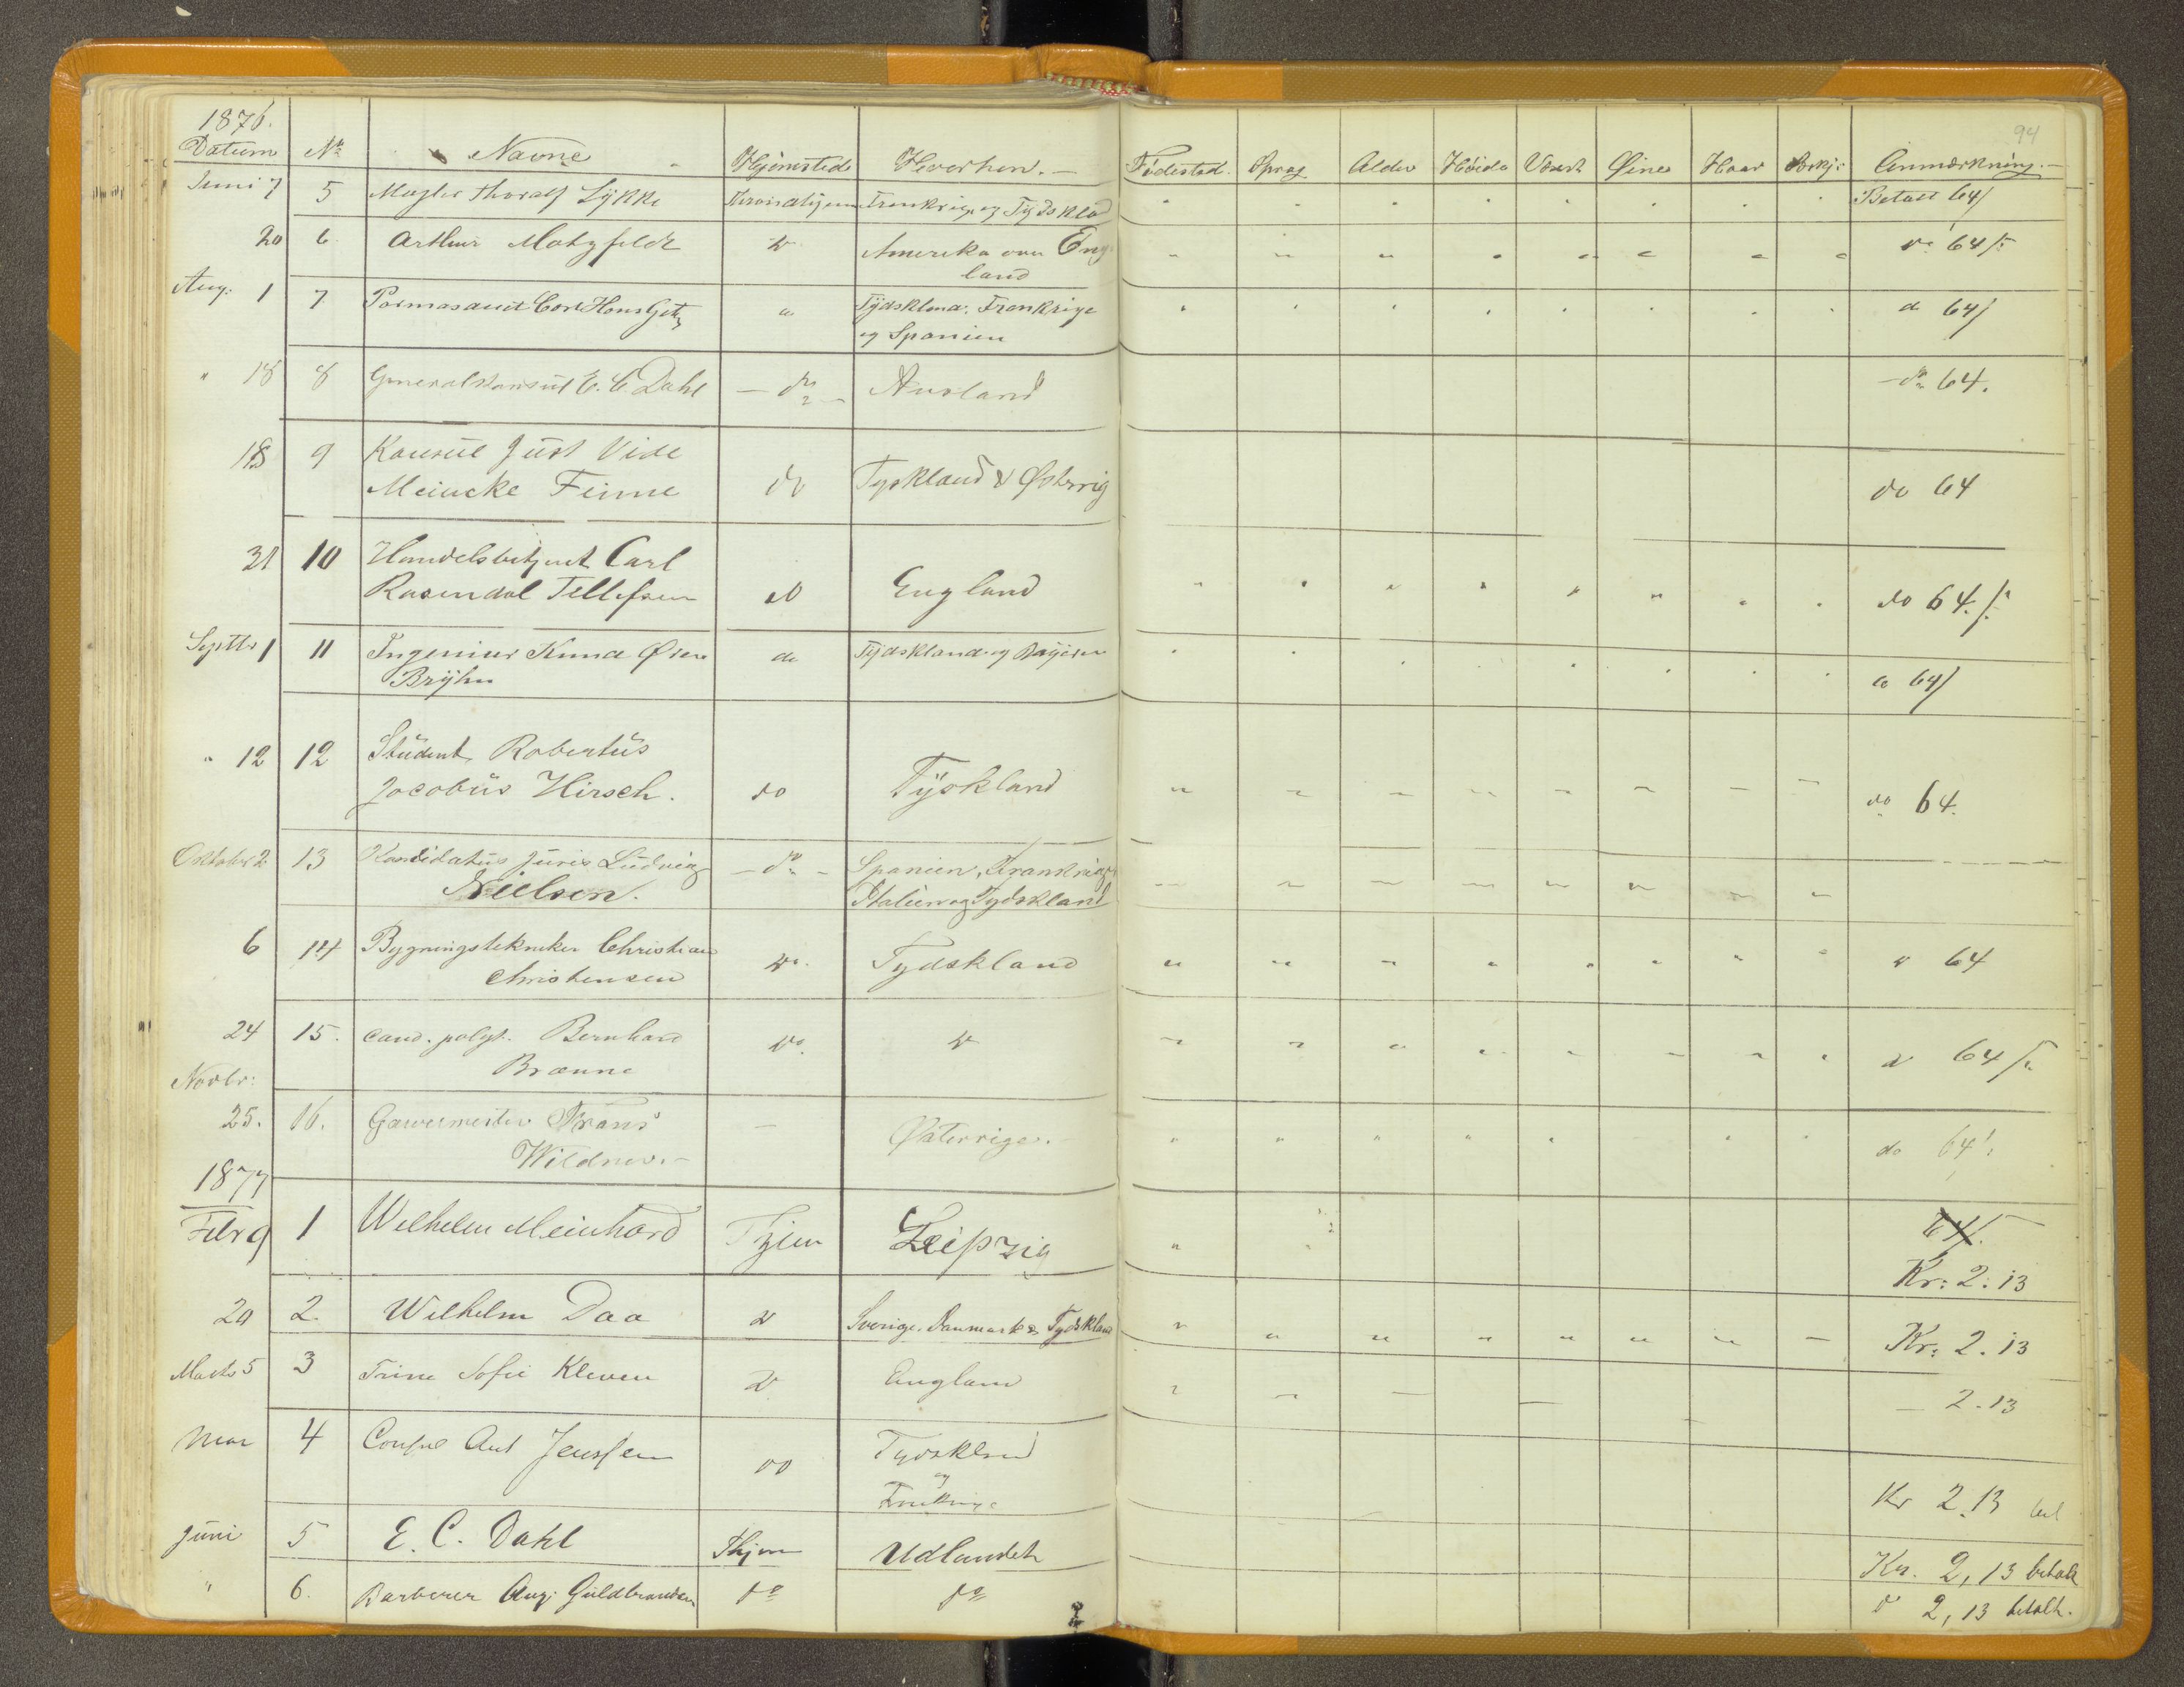 94
1876.
Datum No Navne Hjemsted Hvorhen. Födested. Sprog Alder Höide Vext Øine Haar Anmærkning.
Juni 7 5 Mægler Thoralf Lykke Throndhjem Frankrig og Tydskld Betalt 64/
20 6 Arthur Motzfeldt do Amerika over Eng
land do 64/
Aug: 1 7 Carl Hans Tydskland. Frankrige
og Spanien do 64/
" 18 8 Generalkonsul E. C. Dahl do Rusland do 64.
18 9 Konsul Just Vide
Meincke Finne do Tyskland & Østerrig do 64
31 10 Handelsbetjent Carl
Rosendal Tellefsen do England do 64/
Septbr 1 11 Ingeniør Knud
Brÿhn do Tÿdskland og Bayeren do 64/
" 12 12 Student Robertus
Jacobus Hirsch. do Tÿskland do 64.
Oktober 2 13 Kandidatus Juris Ludvig
Nielsen. do Spanien, Frankrige
Italien og Tydskland
6 14 Bygningstekniker Christian
Christensen do. Tydskland do 64
24 15. Cand. polyt. Bernhard
Brænne do. do do 64/
Novbr:
25. 16. Garvermester Frans
Wildner. Østerrige. do 64
1877
Febr 9 1 Wilhelm Meinhard Thjem Leipzig 64/
Kr: 2.13
20 2. Wilhelm Daa do Sverige. Danmark & Tydskland Kr: 2.13
Marts 5 3 Trine Sofie Kleven do England 2.13
Mar 4 Consul Ant Jenssen do Tydskland
og
Frankrige Kr 2.13 bet
Juni 5 E. C. Dahl Thjem Udlandet Kr. 2,13 betalt
" 6. Barberer Aug: Guldbrandsen do do do 2,13 betalt.